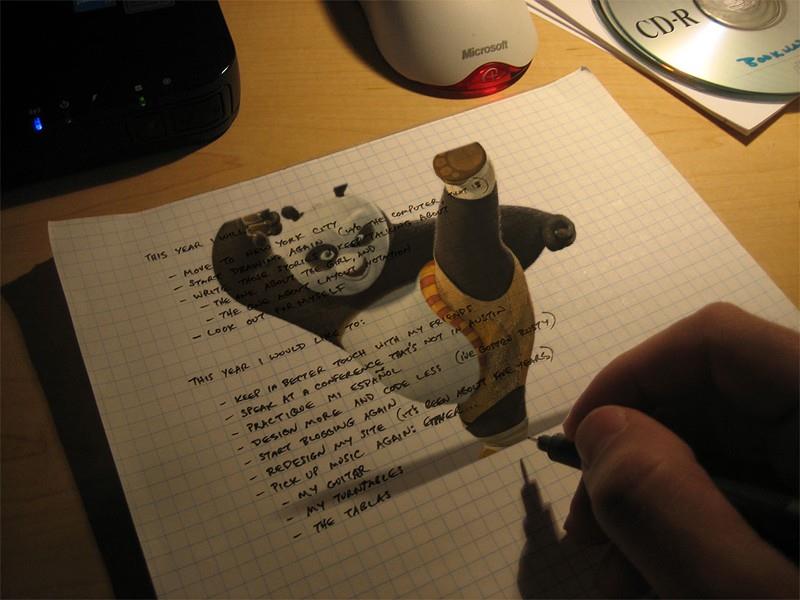 Microsoft
CD-R
THIS YEAR I WILL
- MOVE TO NEW YORK CITY
- START DRAWING AGAIN (W/O THE COMPUTER, THAT IS)
- WRITE THOSE STORIES I KEEP TALKING ABOUT
- THE ONE ABOUT THE GIRL, AND
- THE ONE ABOUT LAYOUT NOTATION
- LOOK OUT FOR MYSELF
THIS YEAR I WOULD LIKE TO:
- KEEP IN BETTER TOUCH WITH MY FRIENDS
- SPEAK AT A CONFERENCE THAT'S NOT IN AUSTIN
- PRACTIQUE MI ESPAÑOL (I'VE GOTTEN RUSTY)
- DESIGN MORE AND CODE LESS
- START BLOGGING AGAIN (IT'S BEEN ABOUT FIVE YEARS)
- REDESIGN MY SITE
- PICK UP MUSIC AGAIN: EITHER...
- MY GUITAR
- MY TURNTABLES
- THE TABLAS